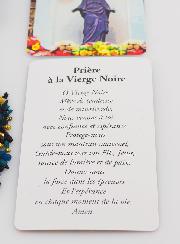 Prière
à la Vierge Noire
O Vierge Noire
Mère de tendresse
et de miséricorde,
Nous venons à toi
avec confiance et espérance
Protège-nous
sous ton manteau maternel,
Guide-nous vers ton Fils, Jésus,
source de lumière et de paix.
Donne-nous
la force dans les épreuves
Et l'espérance
en chaque moment de la vie
Amen